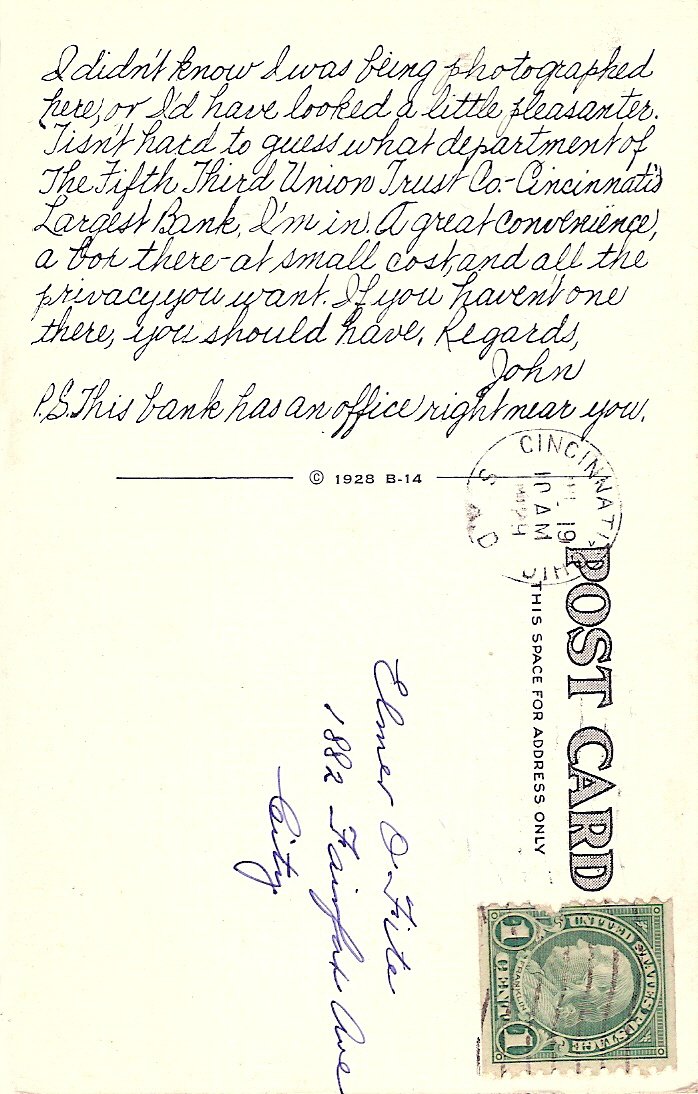 I didn't know I was being photographed
here, or I'd have looked a little pleasanter.
'Tisn't hard to guess what department of
The Fifth Third Union Trust Co.-Cincinnati's
Largest Bank, I'm in. A great convenience,
a box there-at small cost, and all the
privacy you want. If you haven't one
there, you should have. Regards,
John
P.S. This bank has an office right near you.
© 1928 B-14
CINCINNATI
10 AM
19
POST CARD
THIS SPACE FOR ADDRESS ONLY
Elmer O. Fite
1882 Fairfax Ave
City
UNITED STATES POSTAGE
FRANKLIN
1 CENT 1